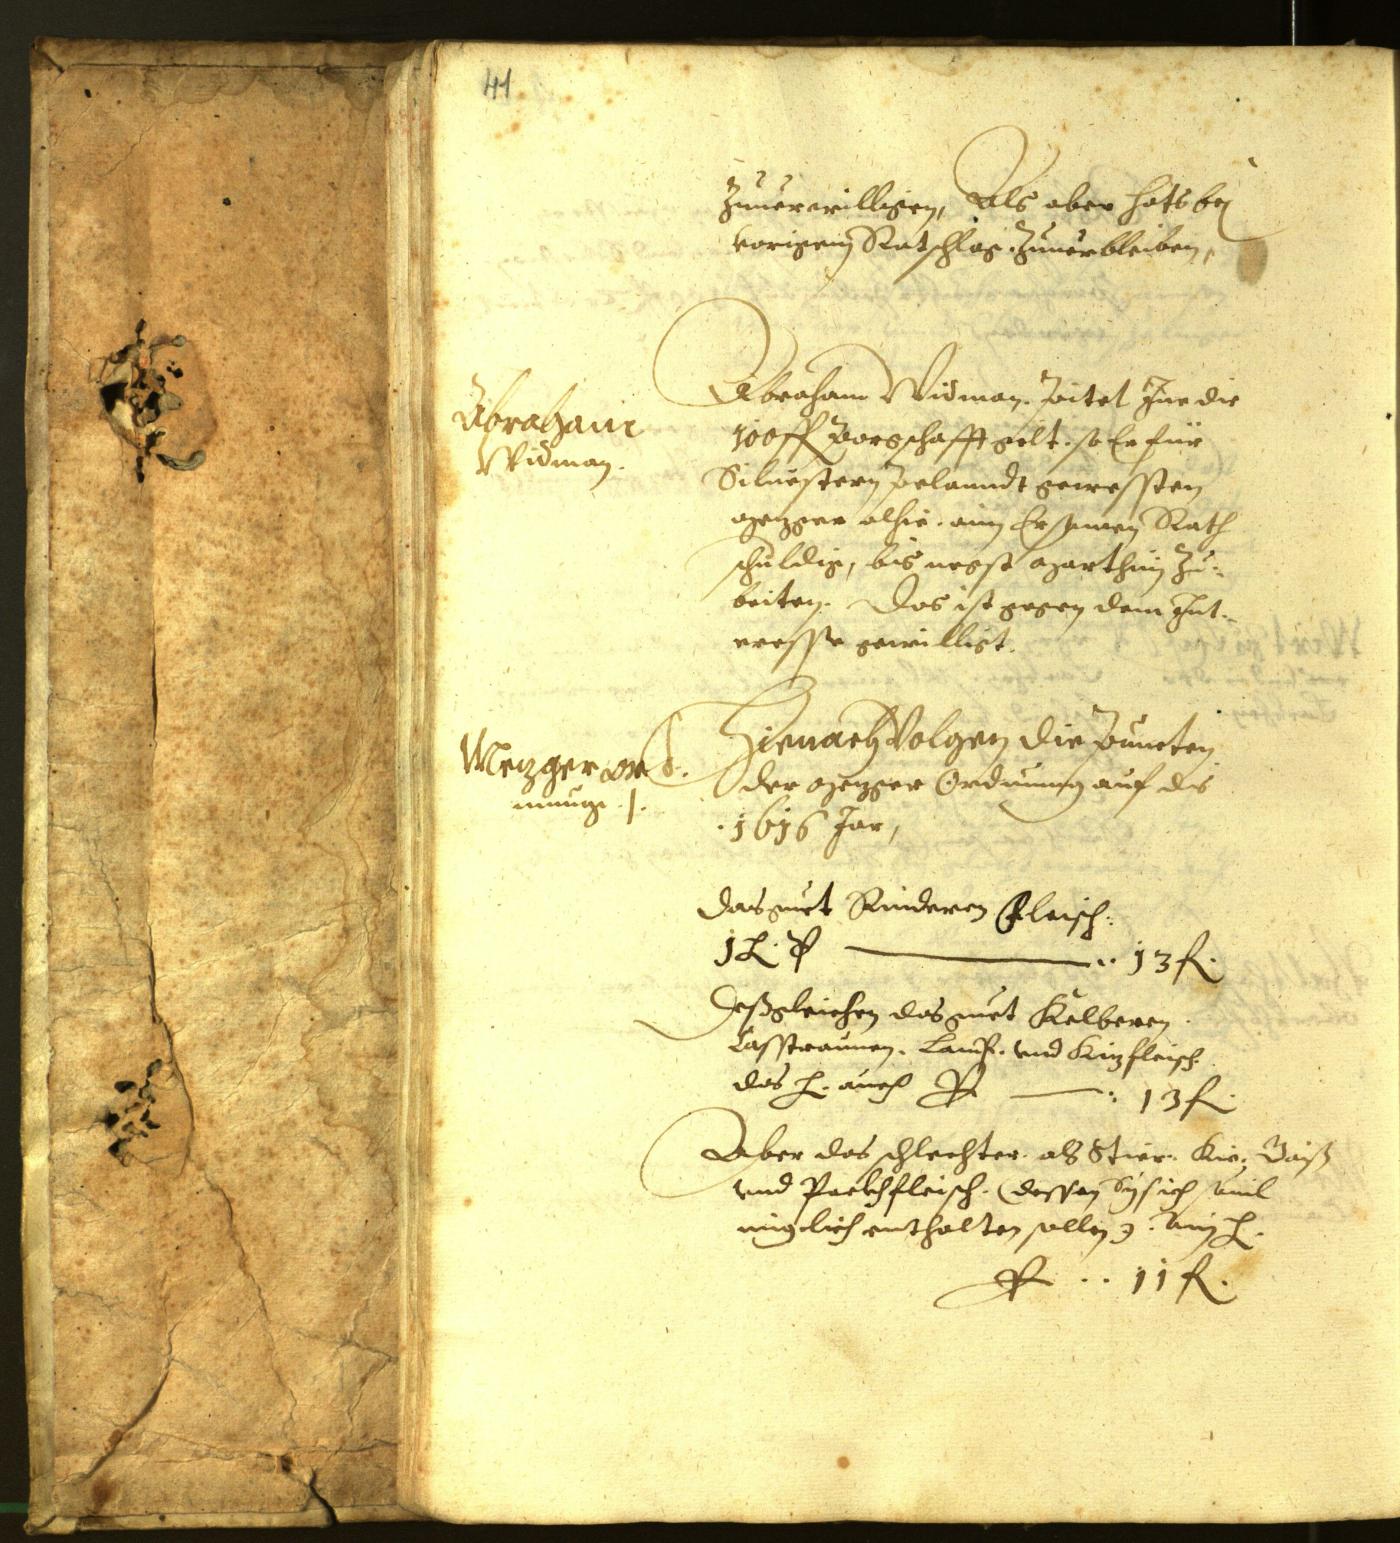 41
Zuuerwilligen, Als aber hats bej
vorigem Ratschlag Zuuerbleiben,
Abraham
Widman.
Abraham Widman. pitet Jne die
100 fl Porgschafft gelt. so Er für
Siluestern gewessten
Mezger alhie. aim Ersamen Rath
schuldig, bis negst Marthinj Zu-
beiten. Das ist gegen dem Int-
eresse gewilligt.
Mezger Ord-
nunge.
Hienach Volgen die Puncten
der Mezger Ordnung auf dis
1616 Jar,
Das guet Rinderen Fleisch:
1 H. P 13 fr.
Deßgleichen das guet Kelberen
Casstraunen. Lamp. vnd Kizfleisch.
das H. auch P 13 fr.
Aber das schlechter. als Stier. Kie. Gaiß
vnd Pockhfleisch. (dessen Sy sich Souil
müglich enthalten sollen). ain H.
P 11 fr.